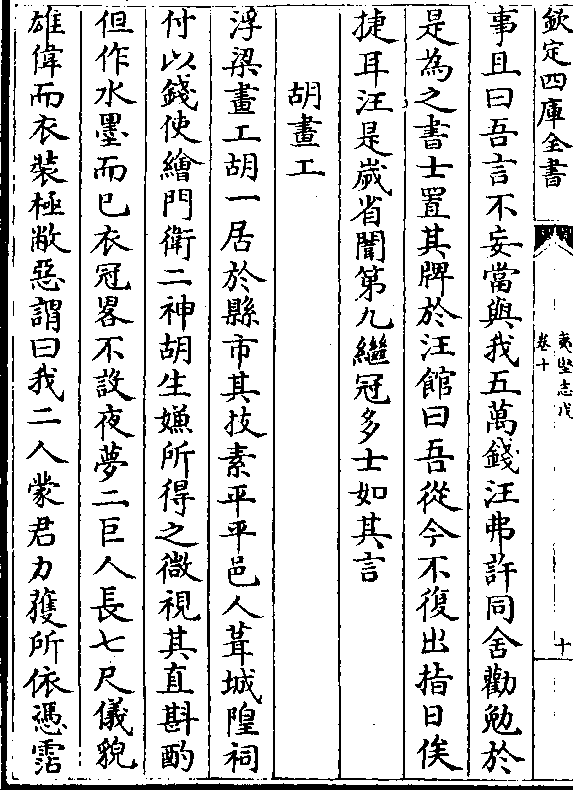 欽定四庫全書
夷堅志戊
卷十
十
事且曰吾言不妄當與我五萬錢汪弗許同舍勸勉於
是為之書士置其牌於汪館曰吾從今不復出指日俟
捷耳汪是歲省闈第九繼冠多士如其言
胡畫工
浮梁畫工胡一居於縣市其技素平平邑人葺城隍祠
付以錢使繪門衛二神胡生嫌所得之微視其直斟酌
但作水墨而已衣冠畧不設夜夢二巨人長七尺儀貌
雄偉而衣裝極敝惡謂曰我二人蒙君力獲所依憑霑